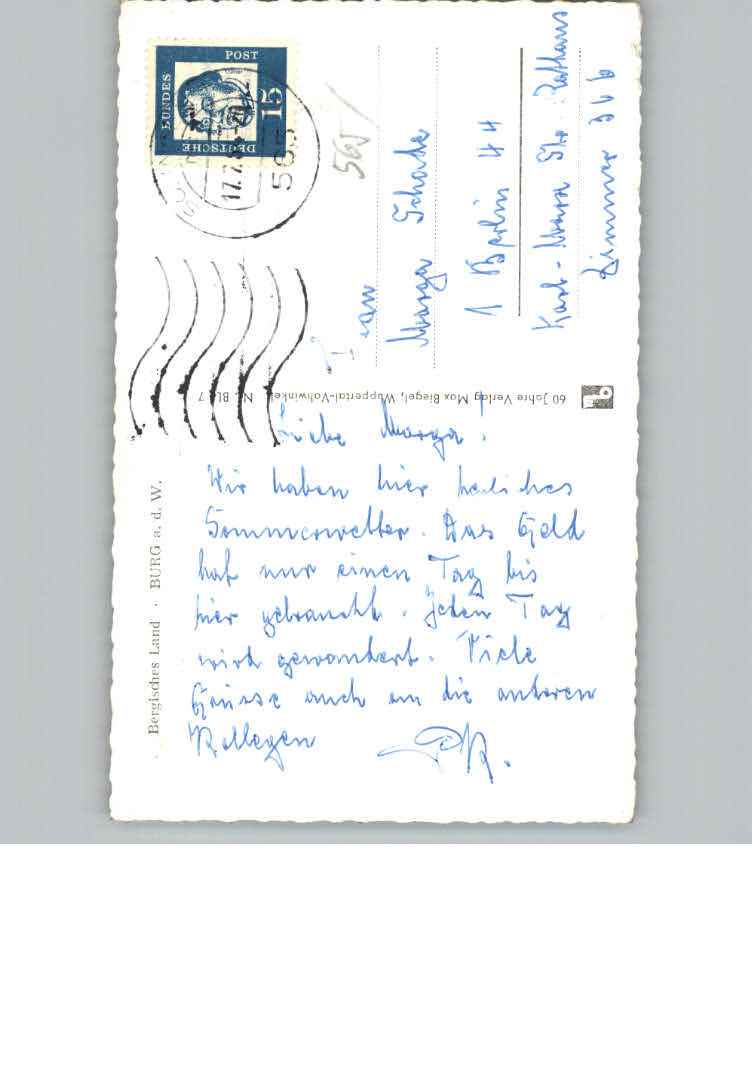 Bergisches Land · BURG a. d. W.
Liebe Marga!
Wir haben hier herliches
Sommerwetter. Das Geld
hat nur einen Tag bis
hier gebraucht. Jeden Tag
wird gewandert. Viele
Grüsse auch an die anderen
Kollegen
60 Jahre Verlag Max Biegel, Wuppertal-Vohwinkel
DEUTSCHE
BUNDES
POST
15
17.7.
565
565
Marga Schade
1 Berlin 44
Karl-Marx Str. Rathaus
Zimmer